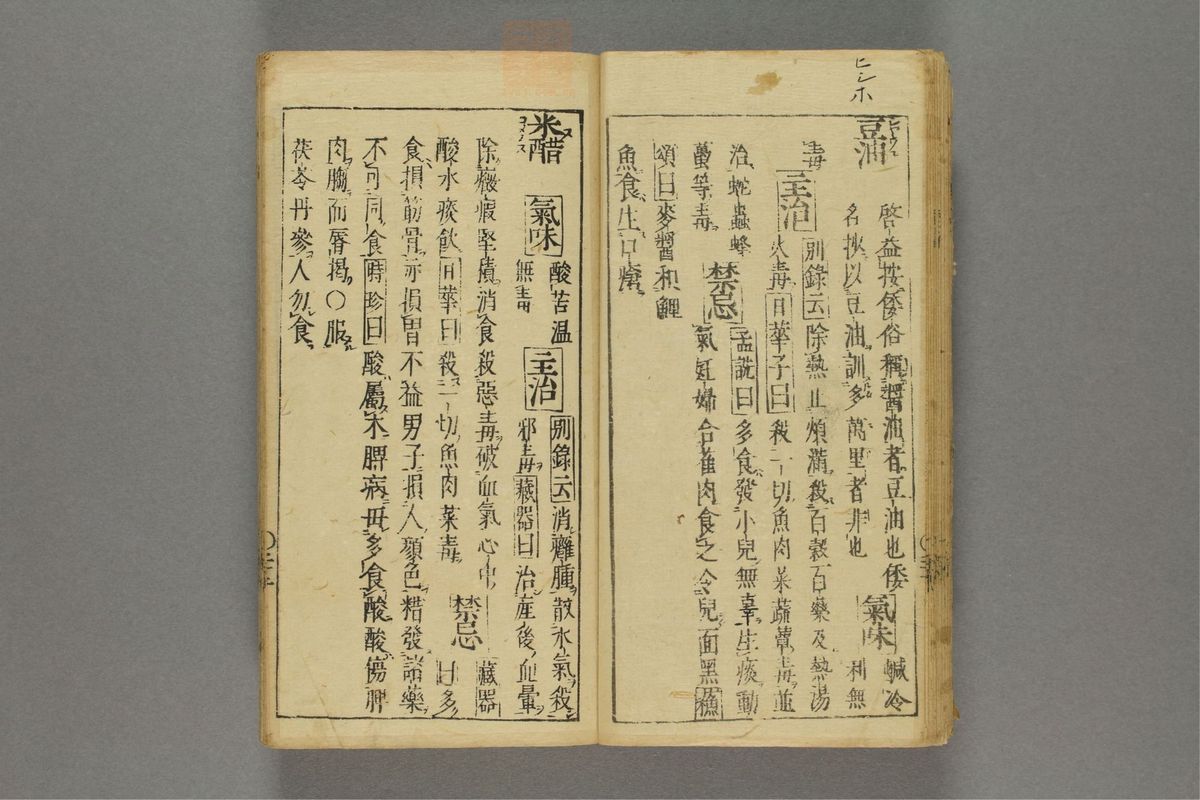 ヒシホ
豆油
啓益按倭俗稱醤油者豆油也倭
名挾以豆油訓多萬里者非也
氣味
鹹冷
利無
毒
主治
別錄云除熱止煩滿殺百藥及熱湯
火毒日華子曰殺一切魚肉菜蔬蕈毒並
治蛇蟲蜂
蠆等毒
禁忌
孟詵曰多食發小兒無辜生痰動
氣妊婦合雀肉食之令兒面黑
頌曰麥醬和鯉
魚食生口瘡
米醋
コメノス
氣味
酸苦温
無毒
主治
別錄云消癰腫散水氣殺
邪毒藏器曰治產後血暈
除癥瘕堅積消食殺惡毒破血氣心中
酸水痰飲日華曰殺一切魚肉菜毒
禁忌
藏器
曰多
食損筋骨亦損胃不益男子損人顔色糙發諸藥
不可同食時珍曰酸屬木脾病毋多食酸酸傷脾
肉䐢而唇揭〇服
茯苓丹參人勿食